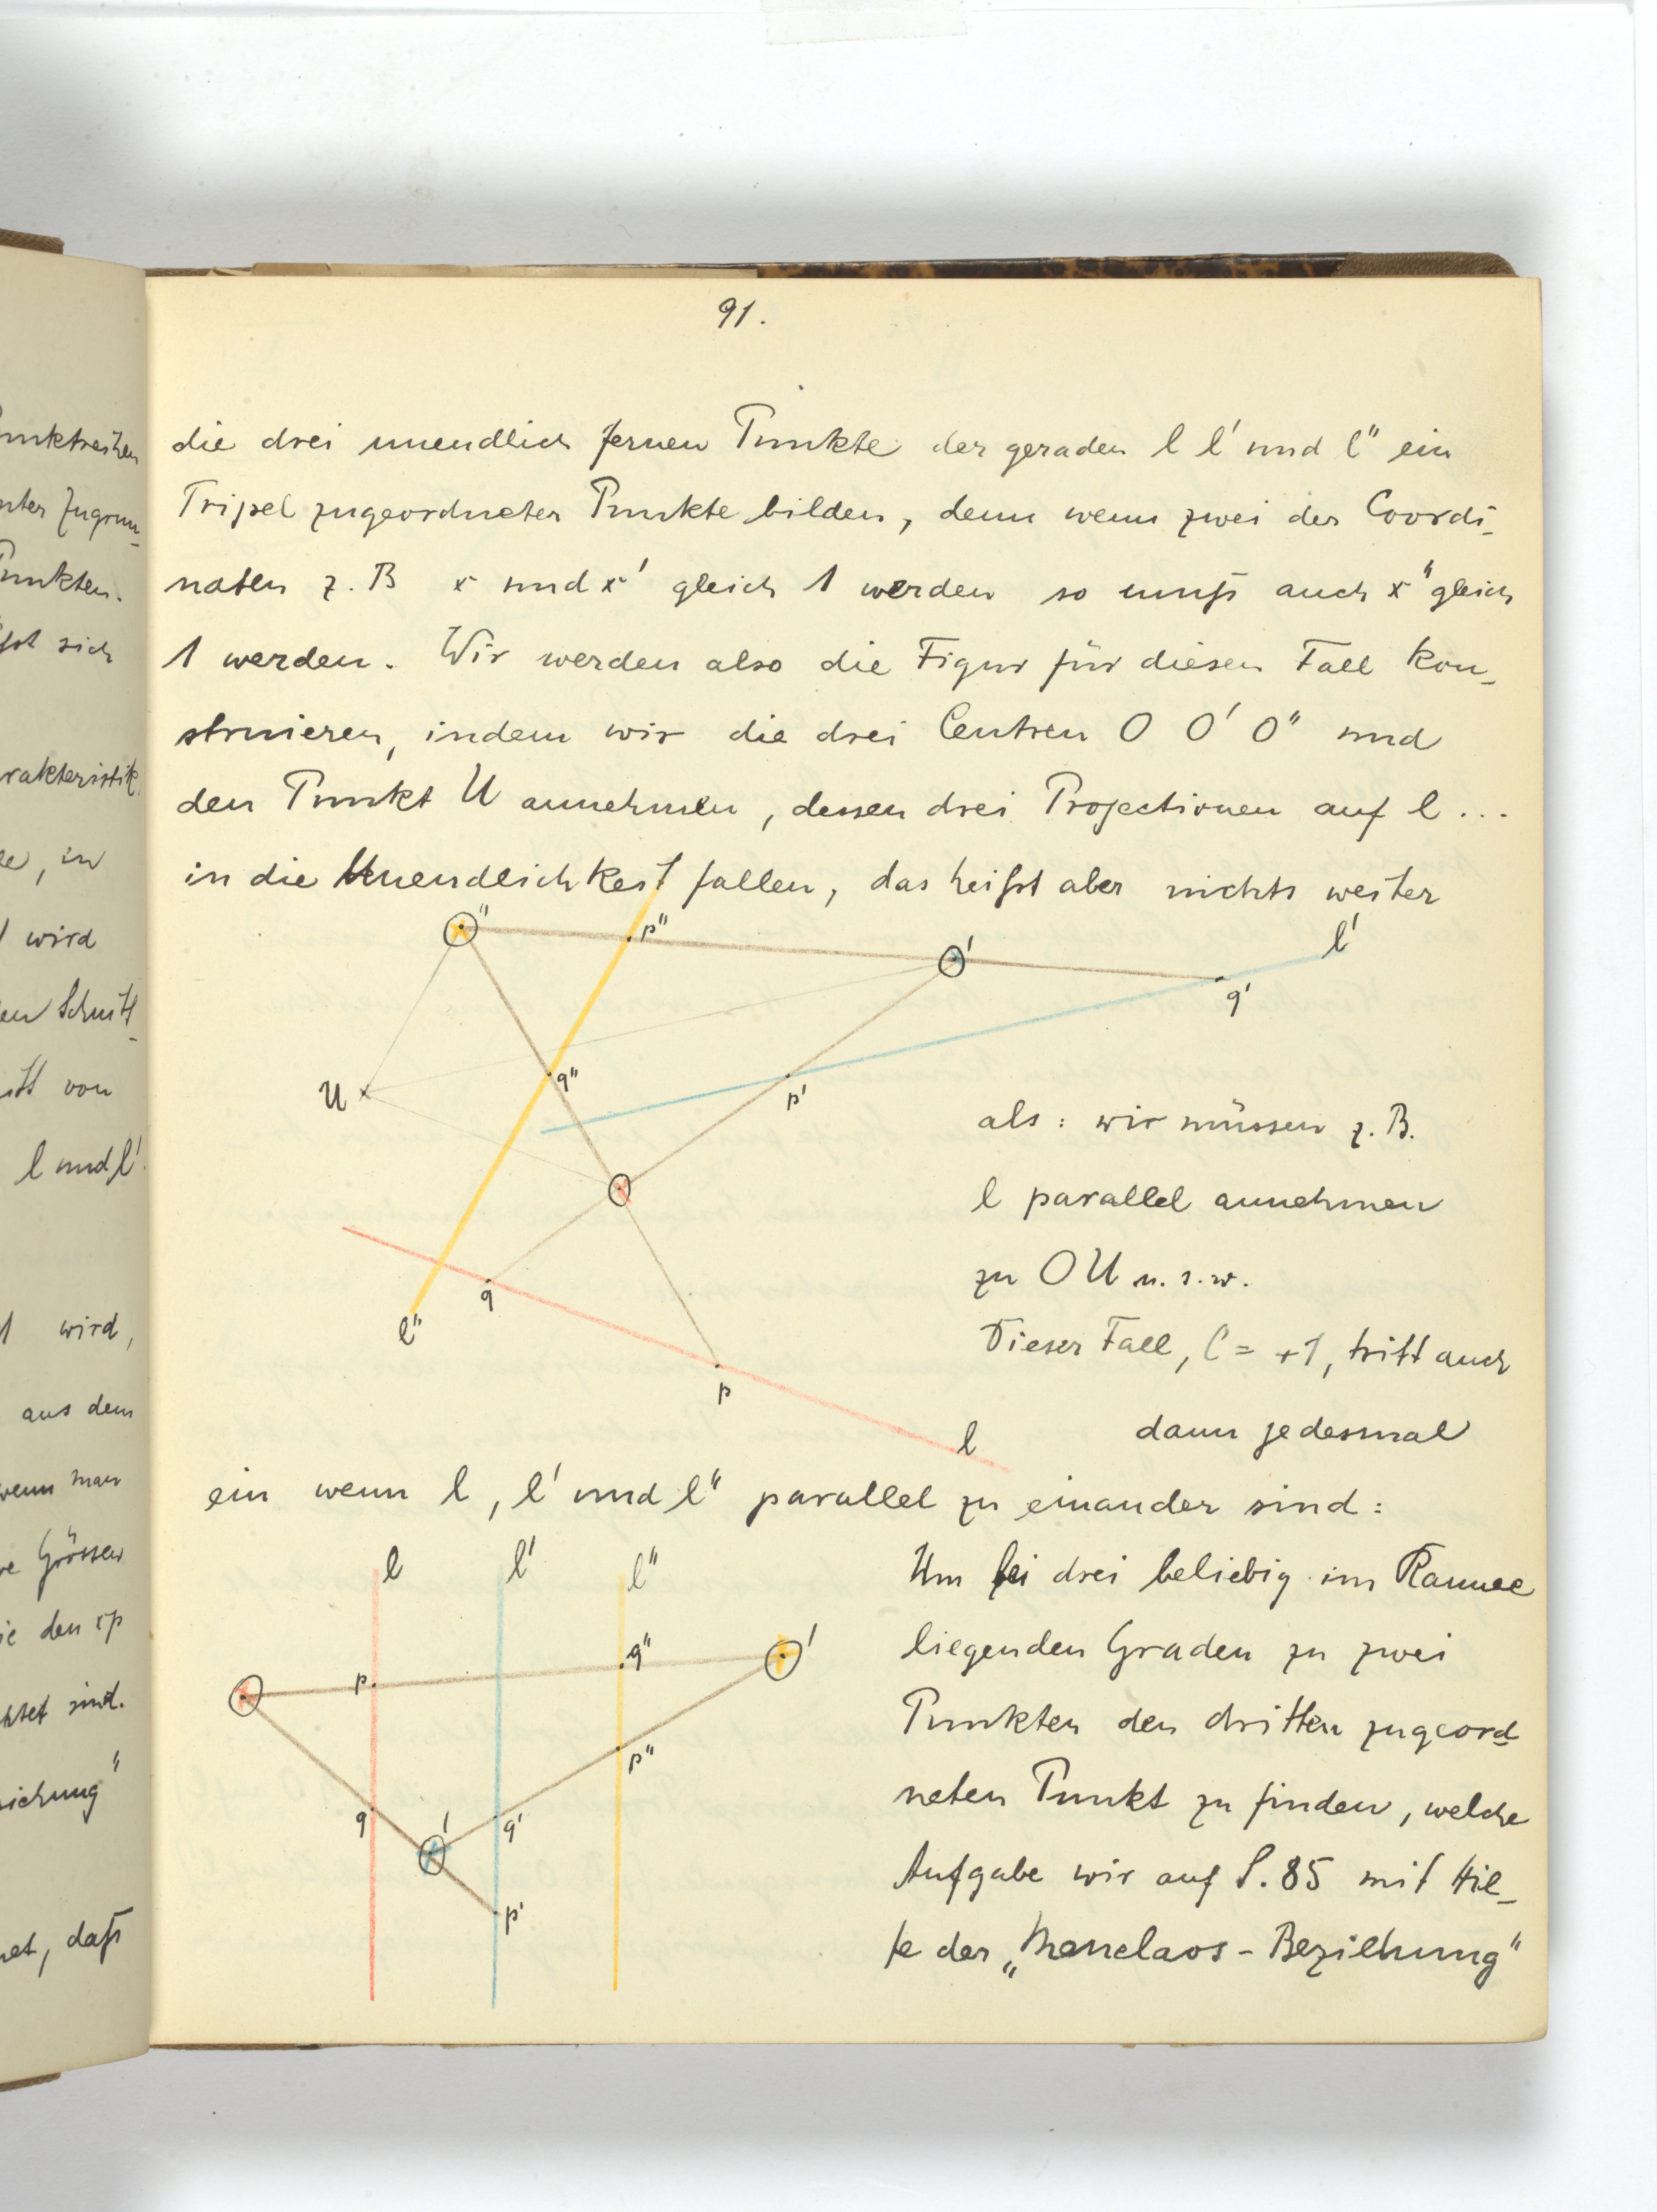 91.
die drei unendlich fernen Punkte der geraden l l' und l" ein
Tripel zugeordneter Punkte bilden, denn wenn zwei der Coordi-
naten z. B x und x' gleich 1 werden so muß auch x" gleich
1 werden. Wir werden also die Figur für diesen Fall kon-
struieren, indem wir die drei Centren O O' O" und
den Punkt U annehmen, dessen drei Projectionen auf l ...
in die Unendlichkeit fallen, das heißt aber nichts weiter
O"
p"
O'
l'
q'
U
q"
p'
als: wir müssen z. B.
l parallel annehmen
zu OU u. s. w.
O
q
l"
p
l
Dieser Fall, C = +1, tritt auch
dann jedesmal
ein wenn l, l' und l" parallel zu einander sind:
l
l'
l"
p
q"
O'
O
p"
q
O'
q'
p'
Um bei drei beliebig im Raume
liegenden Graden zu zwei
Punkten den dritten zugeord-
neten Punkt zu finden, welche
Aufgabe wir auf S. 85 mit Hil-
fe der „Menelaos - Beziehung"
unktreihen
Punkten.
sich
rakteristik
, in
wird
en Schnitt
von
l und l'.
1 wird,
aus dem
wenn man
Grössen
ie den xp
sind.
ziehung"
, daß